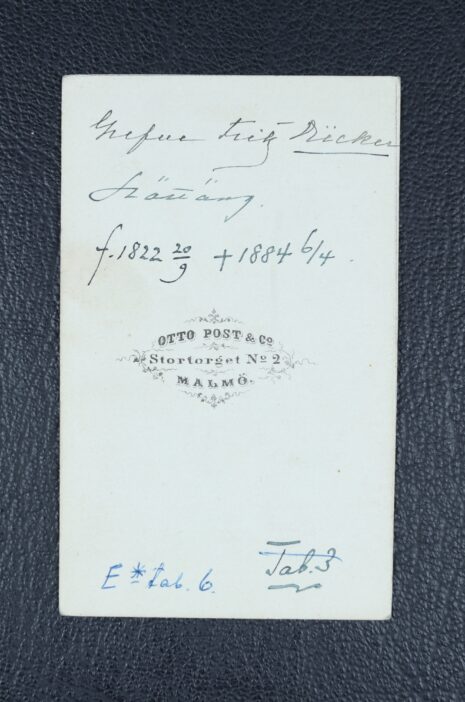 Grefve Fritz Dücker
f. 1822 20/9 + 1884 6/4.
OTTO POST & Co
Stortorget No 2
MALMÖ.
Tab. 3
E * tab. 6.